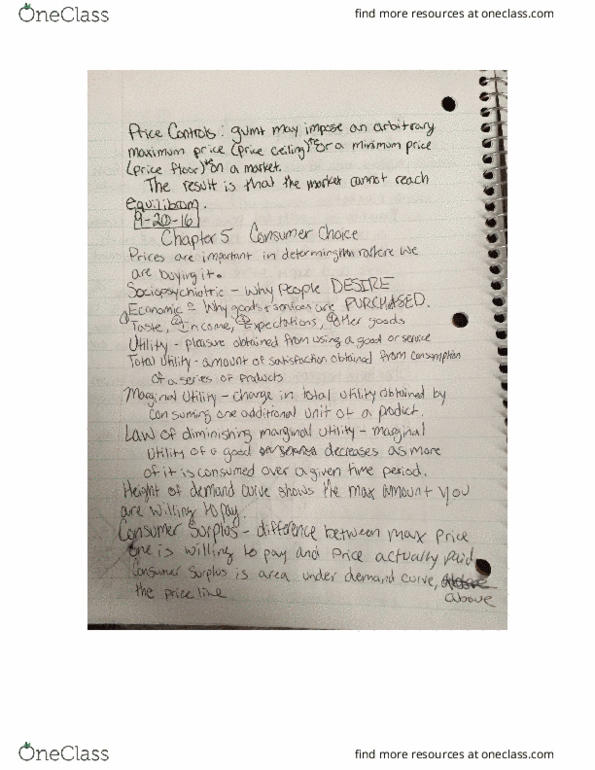 OneClass
find more resources at oneclass.com
Price Controls: gvmt may impose an arbitrary
maximum price (price ceiling) or a minimum price
(price floor) on a market.
The result is that the market cannot reach
equilibrom.
9-20-16
Chapter 5 Consumer Choice
Prices are important in we
are buying it.
Sociopsychiatric - why people DESIRE
Economic - Why goods + services are PURCHASED.
① Taste, ② Income, ③ Expectations, ④ other goods
Utility - pleasure obtained from using a good or service
Total Utility - amount of satisfaction obtained from consumption
of a series of products
Marginal Utility - change in total utility obtained by
consuming one additional unit of a product.
Law of diminishing marginal utility - marginal
utility of a good decreases as more
of it is consumed over a given time period.
Height of demand curve shows the max amount you
are willing to pay.
Consumer Surplus - difference between max price
one is willing to pay and price actually paid
Consumer Surplus is area under demand curve,
the price line above
OneClass
find more resources at oneclass.com